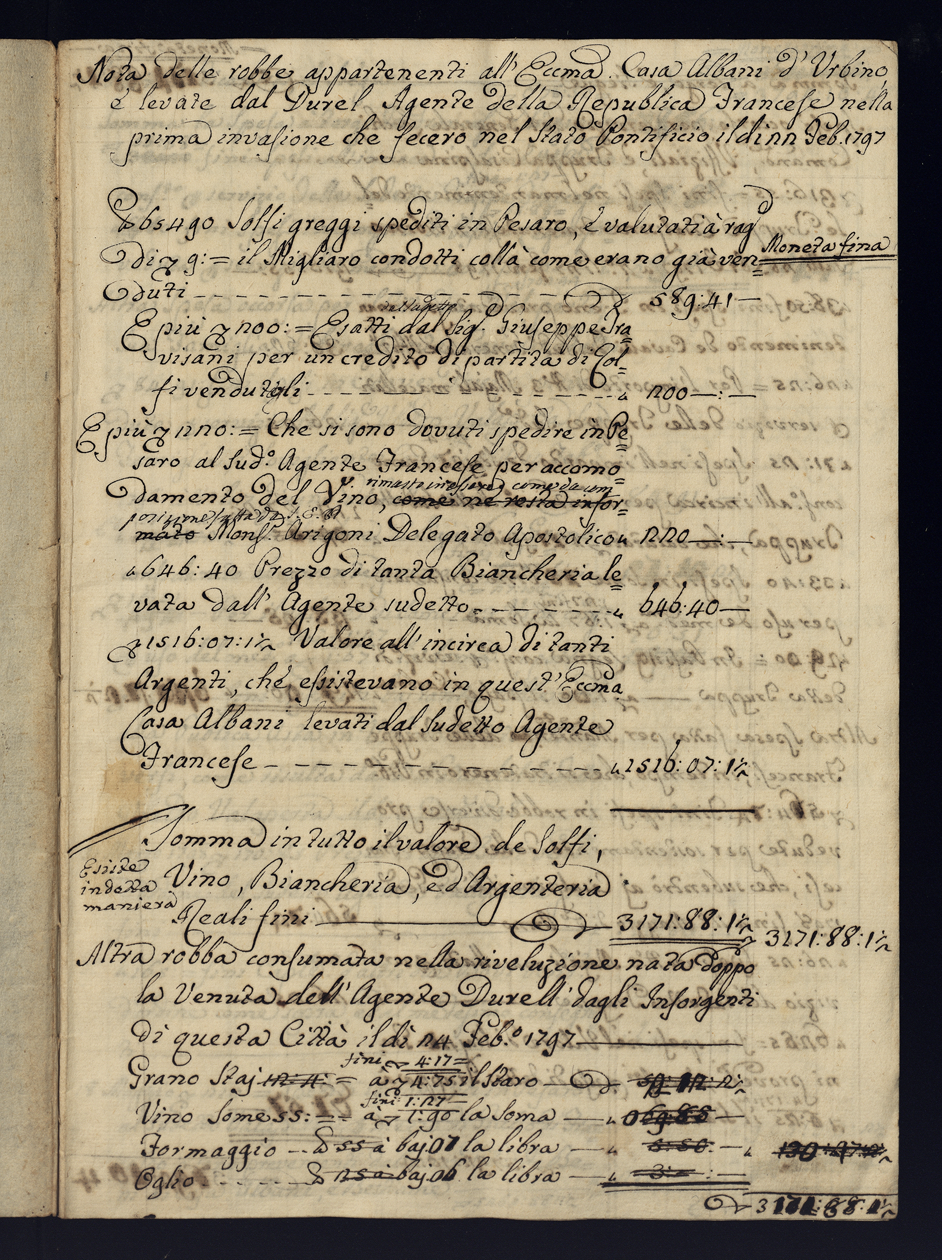 Nota delle robbe appartenenti all' Eccma. Casa Albani d' Urbino
e levate dal Durel Agente della Republica Francese nella
prima invasione che fecero nel Stato Pontificio il di Feb. 1797
65490 Solfi greggi spediti in Pesaro, e valutati à rag.
di 9:= il Migliaro condotti collà come erano già ven=
Moneta fina
duti 589:41—
E più 200:= Esatti dal Sig.r Giuseppe Tra=
visani per un credito di partita di Sol=
fi vendutigli 200—:—
E più 220:= Che si sono dovuti spedire in Pe=
saro al sud.o Agente Francese per accomo=
rimasti in essere, come da com=
damento del Vino, come ne resta infor=
posizione fatta da S. E. R.
mato Mons.r Arigoni Delegato Apostolico 220—:—
646:40 Prezzo di tanta Biancheria le=
vata dall' Agente sudetto 646:40—
1516:07:1½ Valore all' incirca di tanti
Argenti, che essistevano in quest' Eccma
Casa Albani levati dal sudetto Agente
Francese 1516:07:1½
Somma in tutto il valore de Solfi,
Esiste
in detta
maniera
Vino, Biancheria, ed Argenteria
Reali fini 3171:88:1½ 3171:88:1½
Altra robba consumata nella riveluzione nata doppo
la Venuta dell' Agente Durell' dagli Insorgenti
di questa Città il di 24 Feb.o 1797
fini 4:17=
Grano Staj 12:4:= à 4:75 il staro
fini 1:27=
Vino Some 55:= à 1:90 la soma 69 85
Formaggio 55 à baj 07 la libra 3:50:—
Oglio 25 à baj 06 la libra 3:—:—
3171:88:1½